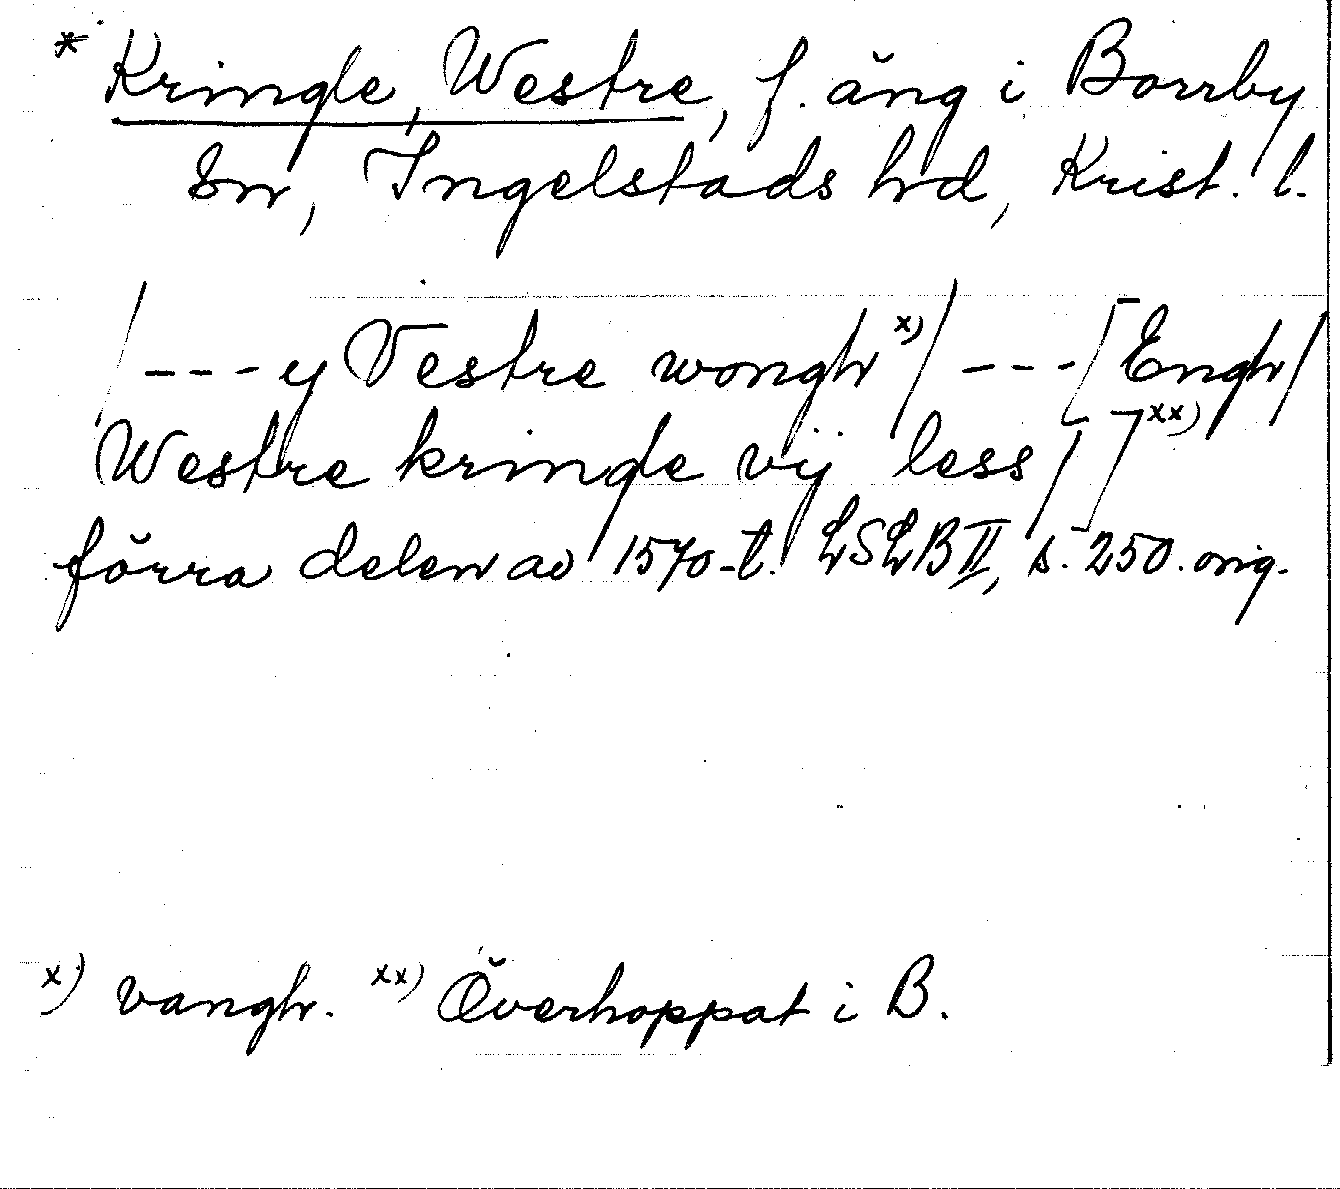 * Kringle, Westre, f. äng i Borrby
sn, Ingelstads hrd, Krist. l.
/ - - - y Vestre wongh x) / - - - / [Engh /
Westre kringle vij less / ] xx)
förra delen av 1570-t. LSLB II, s. 250. orig.
x) vangh. xx) Överhoppat i B.